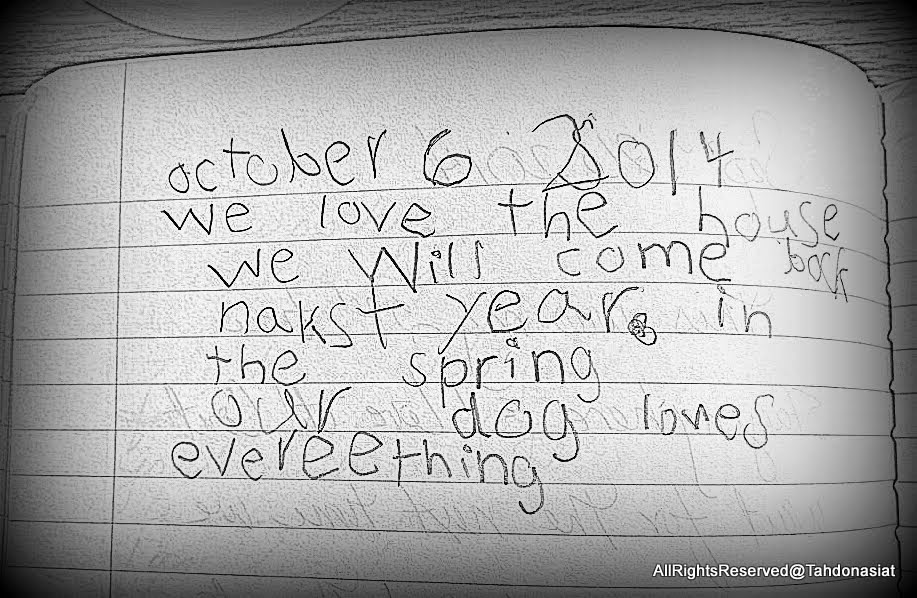 october 6 2014
we love the house
we will come back
nakst year. in
the spring
our dog loves
evereething
AllRightsReserved@Tahdonasiat